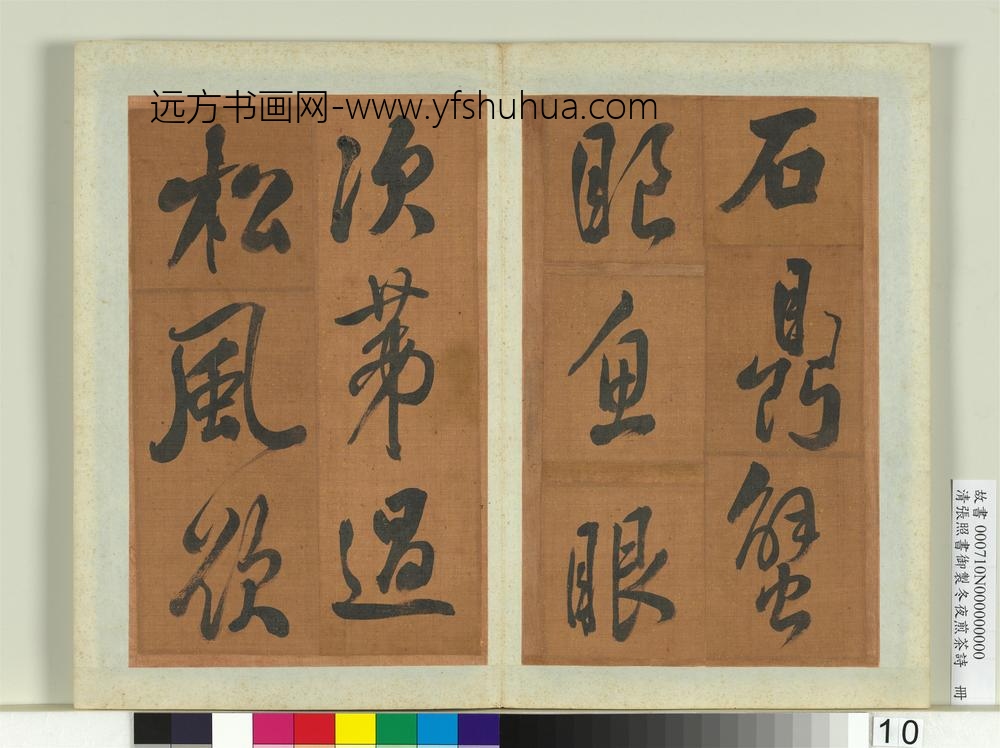 远方书画网-www.yfshuhua.com
石鼎蟹
眼魚眼
次第過
松風欲
故書 000710N000000000
清張照書御製冬夜煎茶詩 冊
10